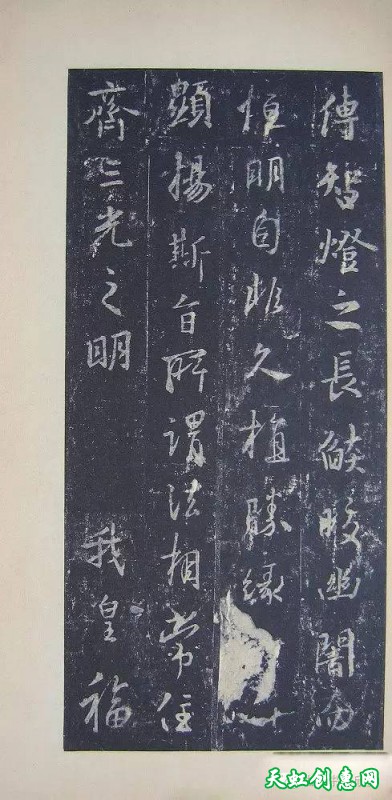 傳智燈之長燄皎幽闇而
恒明自非久植勝緣
顯揚斯旨所謂法相常住
齊三光之明　我皇福
天虹创惠网